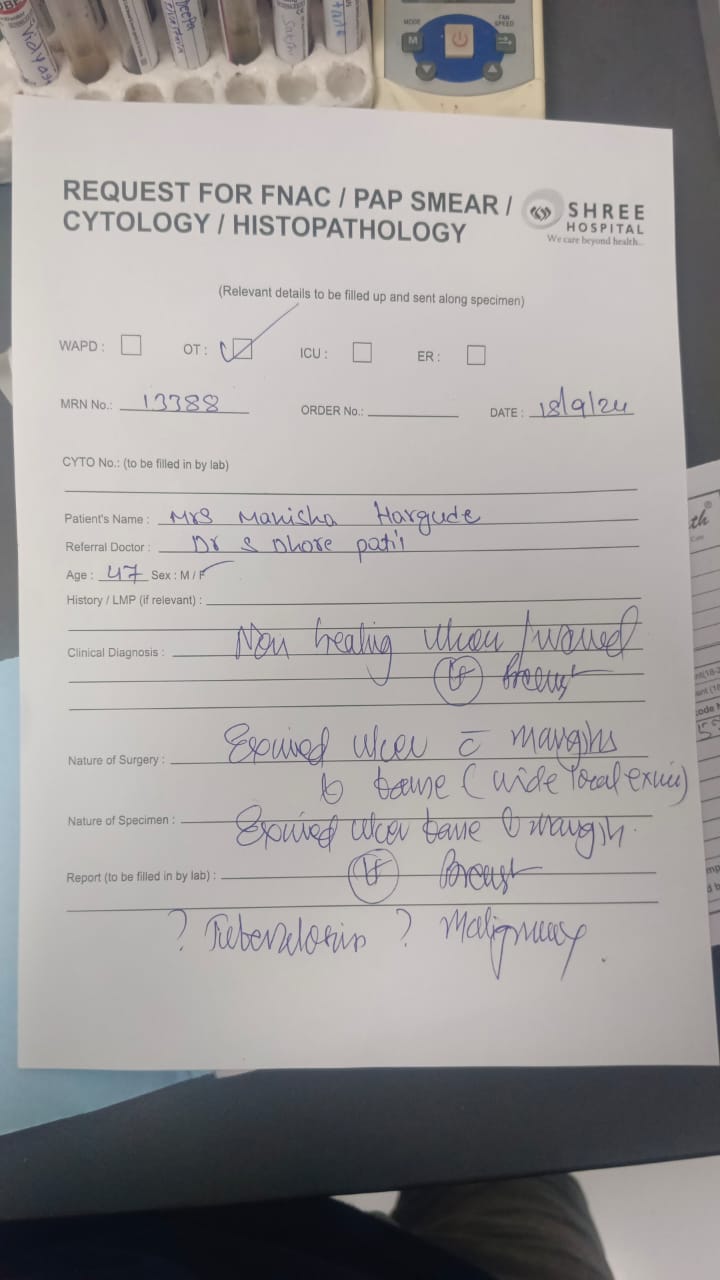 REQUEST FOR FNAC / PAP SMEAR /
CYTOLOGY / HISTOPATHOLOGY
SHREE
HOSPITAL
We care beyond health..
(Relevant details to be filled up and sent along specimen)
WAPD : OT : ICU : ER :
MRN No.: 13388 ORDER No.: DATE : 18/9/24
CYTO No.: (to be filled in by lab)
Patient's Name : Mrs Manisha Hargude
Referral Doctor : Dr S Dhore patil
Age : 47 Sex : M / F
History / LMP (if relevant) :
Clinical Diagnosis : Non healing ulcer / wound
Breast
Nature of Surgery : Excised ulcer c̄ margins
& base (wide local excisi)
Nature of Specimen : Excised ulcer base margin.
Report (to be filled in by lab) : Breast
? Tuberculosis ? Malignancy.
MODE
FAN
SPEED
M